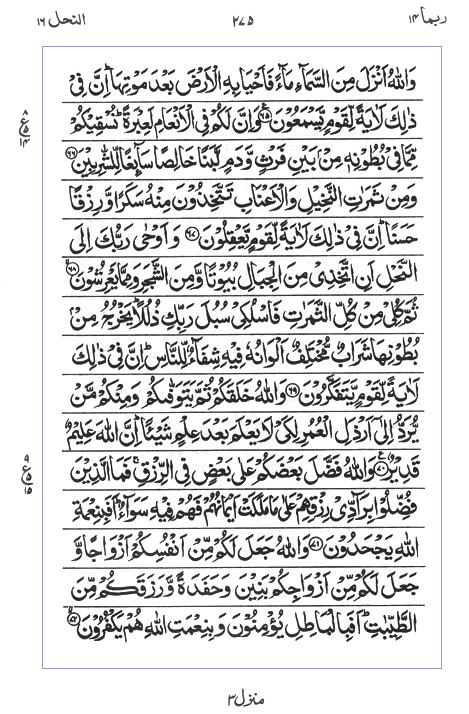 ربما ١٤ ٢٧٥ النحل ١٦
وَاللّٰهُ اَنْزَلَ مِنَ السَّمَآءِ مَآءً فَاَحْيَا بِهِ الْاَرْضَ بَعْدَ مَوْتِهَا ؕ اِنَّ فِیْ
ذٰلِكَ لَاٰیَةً لِّقَوْمٍ یَّسْمَعُوْنَ ﴿٦٥﴾ وَاِنَّ لَكُمْ فِی الْاَنْعَامِ لَعِبْرَةً ؕ نُسْقِیْكُمْ
٨ ع ٥ ١٤
مِّمَّا فِیْ بُطُوْنِهٖ مِنْۢ بَیْنِ فَرْثٍ وَّدَمٍ لَّبَنًا خَالِصًا سَآئِغًا لِّلشّٰرِبِیْنَ ﴿٦٦﴾
وَمِنْ ثَمَرٰتِ النَّخِیْلِ وَالْاَعْنَابِ تَتَّخِذُوْنَ مِنْهُ سَكَرًا وَّرِزْقًا
حَسَنًا ؕ اِنَّ فِیْ ذٰلِكَ لَاٰیَةً لِّقَوْمٍ یَّعْقِلُوْنَ ﴿٦٧﴾ وَاَوْحٰی رَبُّكَ اِلَی
النَّحْلِ اَنِ اتَّخِذِیْ مِنَ الْجِبَالِ بُیُوْتًا وَّمِنَ الشَّجَرِ وَمِمَّا یَعْرِشُوْنَ ﴿٦٨﴾
ثُمَّ كُلِیْ مِنْ كُلِّ الثَّمَرٰتِ فَاسْلُكِیْ سُبُلَ رَبِّكِ ذُلُلًا ؕ یَخْرُجُ مِنْۢ
بُطُوْنِهَا شَرَابٌ مُّخْتَلِفٌ اَلْوَانُهٗ فِیْهِ شِفَآءٌ لِّلنَّاسِ ؕ اِنَّ فِیْ ذٰلِكَ
لَاٰیَةً لِّقَوْمٍ یَّتَفَكَّرُوْنَ ﴿٦٩﴾ وَاللّٰهُ خَلَقَكُمْ ثُمَّ یَتَوَفّٰىكُمْ ۙ وَمِنْكُمْ مَّنْ
یُّرَدُّ اِلٰۤی اَرْذَلِ الْعُمُرِ لِكَیْ لَا یَعْلَمَ بَعْدَ عِلْمٍ شَیْئًا ؕ اِنَّ اللّٰهَ عَلِیْمٌ
قَدِیْرٌ ﴿٧٠﴾ وَاللّٰهُ فَضَّلَ بَعْضَكُمْ عَلٰی بَعْضٍ فِی الرِّزْقِ ۚ فَمَا الَّذِیْنَ
٩ ع ٥ ١٥
فُضِّلُوْا بِرَآدِّیْ رِزْقِهِمْ عَلٰی مَا مَلَكَتْ اَیْمَانُهُمْ فَهُمْ فِیْهِ سَوَآءٌ ؕ اَفَبِنِعْمَةِ
اللّٰهِ یَجْحَدُوْنَ ﴿٧١﴾ وَاللّٰهُ جَعَلَ لَكُمْ مِّنْ اَنْفُسِكُمْ اَزْوَاجًا وَّ
جَعَلَ لَكُمْ مِّنْ اَزْوَاجِكُمْ بَنِیْنَ وَحَفَدَةً وَّرَزَقَكُمْ مِّنَ
الطَّیِّبٰتِ ؕ اَفَبِالْبَاطِلِ یُؤْمِنُوْنَ وَبِنِعْمَتِ اللّٰهِ هُمْ یَكْفُرُوْنَ ﴿٧٢﴾
منزل ٣